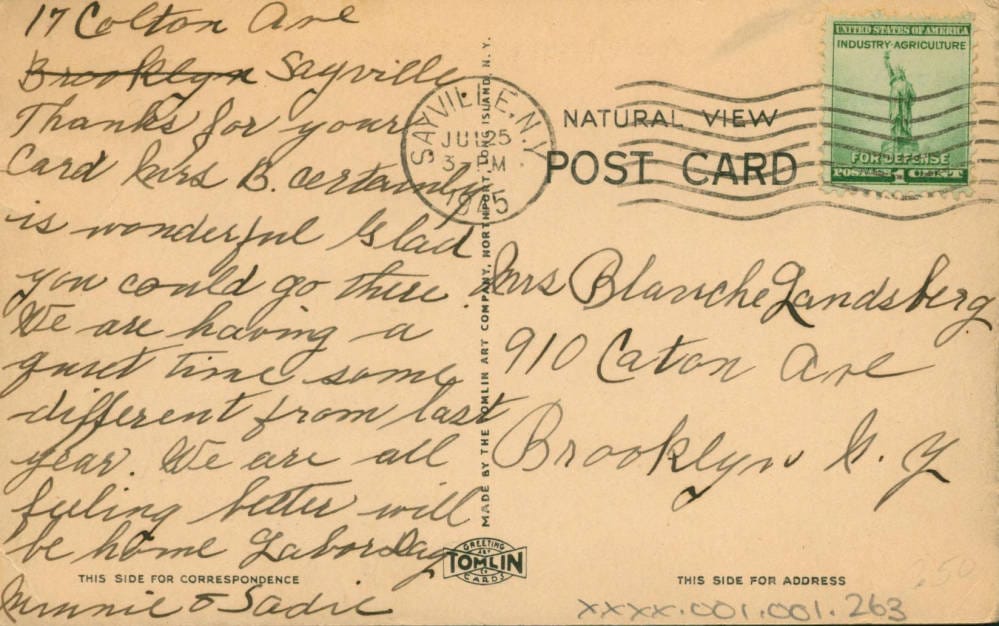 17 Colton Ave
Brooklyn Sayville
Thanks for your
Card Mrs B. certainly
is wonderful Glad
you could go there.
We are having a
quiet time some
different from last
year. We are all
feeling better will
be home Labor Day
Minnie & Sadie
THIS SIDE FOR CORRESPONDENCE
MADE BY THE TOMLIN ART COMPANY, NORTHPORT, LONG ISLAND, N. Y.
GREETING
ART
TOMLIN
CO
CARDS
SAYVILLE, N.Y.
JUL 25
3 PM
1945
NATURAL VIEW
POST CARD
UNITED STATES OF AMERICA
INDUSTRY·AGRICULTURE
FOR DEFENSE
POSTAGE 1 CENT
Mrs Blanche Landsberg
910 Caton Ave
Brooklyn N. Y
THIS SIDE FOR ADDRESS
.50
XXXX.001.001.263